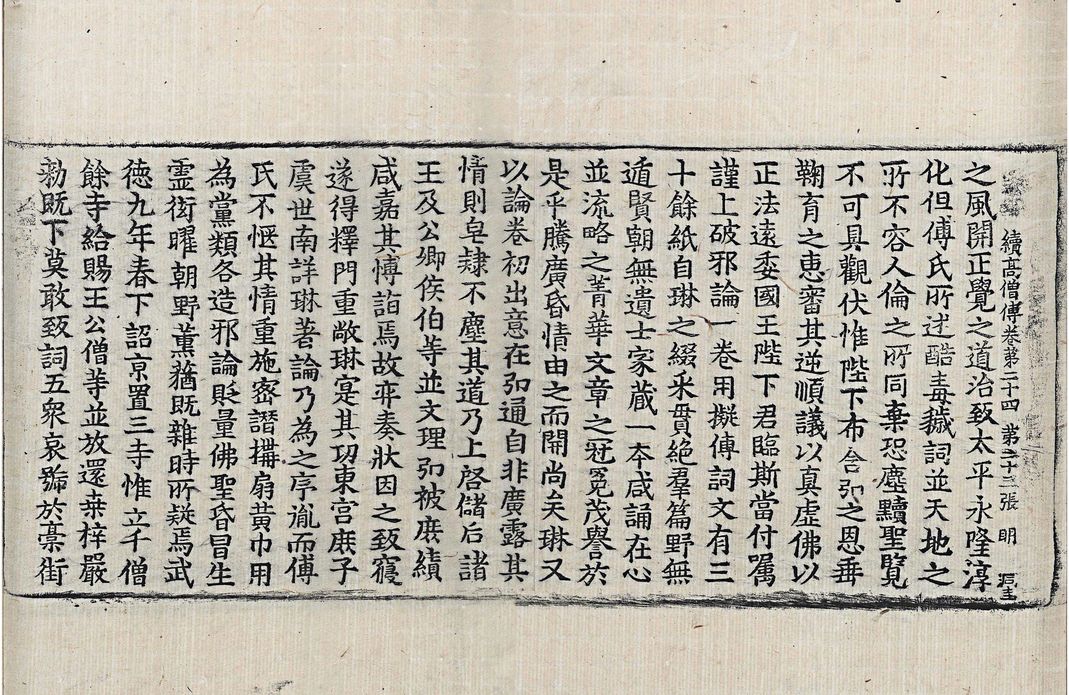 續高僧傳卷第二十四 第二十三張 明
之風開正覺之道治致太平永隆淳
化但傅氏所述酷毒穢詞並天地之
所不容人倫之所同棄恐塵黷聖覽
不可具觀伏惟陛下布含弘之恩垂
鞠育之恵審其逆順議以真虛佛以
正法遠委國王陛下君臨斯當付囑
謹上破邪論一卷用擬傅詞文有三
十餘紙自琳之綴采貫絕羣篇野無
遁賢朝無遺士家藏一本咸誦在心
並流略之菁華文章之冠冕茂譽於
是乎騰廣昏情由之而開尚矣琳又
以論卷初出意在弘通自非廣露其
情則皂隷不塵其道乃上啓儲后諸
王及公卿侯伯等並文理弘被庶績
咸嘉其博詣焉故弈奏狀因之致寢
遂得釋門重敞琳寔其功東宮庶子
虞世南詳琳著論乃為之序胤而傅
氏不愜其情重施密譖搆扇黃巾用
為黨類各造邪論貶量佛聖昏冒生
靈衒曜朝野薰蕕既雜時所疑焉武
徳九年春下詔京置三寺惟立千僧
餘寺給賜王公僧等並放還桒梓嚴
勑既下莫敢致詞五衆哀號於槀街